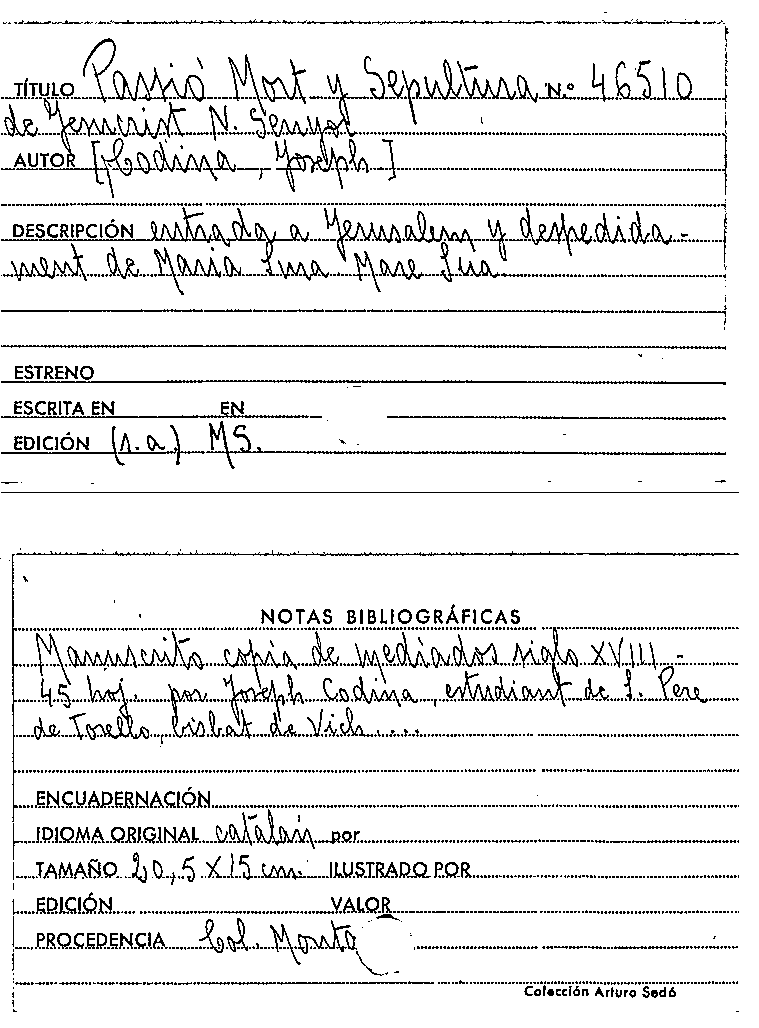 TÍTULO Passió Mort y Sepultura N.º 46510
de Jesucrist N. Senyor
AUTOR [Codina, Joseph]
DESCRIPCIÓN entrada a Jerusalem y despedida-
ment de Maria Sma Mare Sua
ESTRENO
ESCRITA EN EN
EDICIÓN (s.a.) MS.
NOTAS BIBLIOGRÁFICAS
Manuscrito copia de mediados siglo XVIII -
45 hoj. por Joseph Codina, estudiant de S. Pere
de Torello, bisbat de Vich....
ENCUADERNACIÓN
IDIOMA ORIGINAL catalán por
TAMAÑO 20,5 X 15 cm. ILUSTRADO POR
EDICIÓN VALOR
PROCEDENCIA Col.
Colección Arturo Sedó